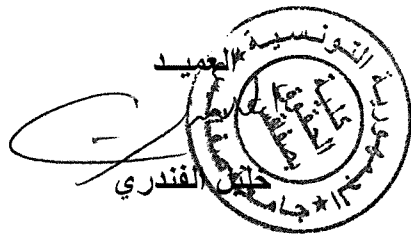 العميد
خليل الفندري
الجمهورية التونسية
جامعة صفاقس
كلية
الحقوق
بصفاقس